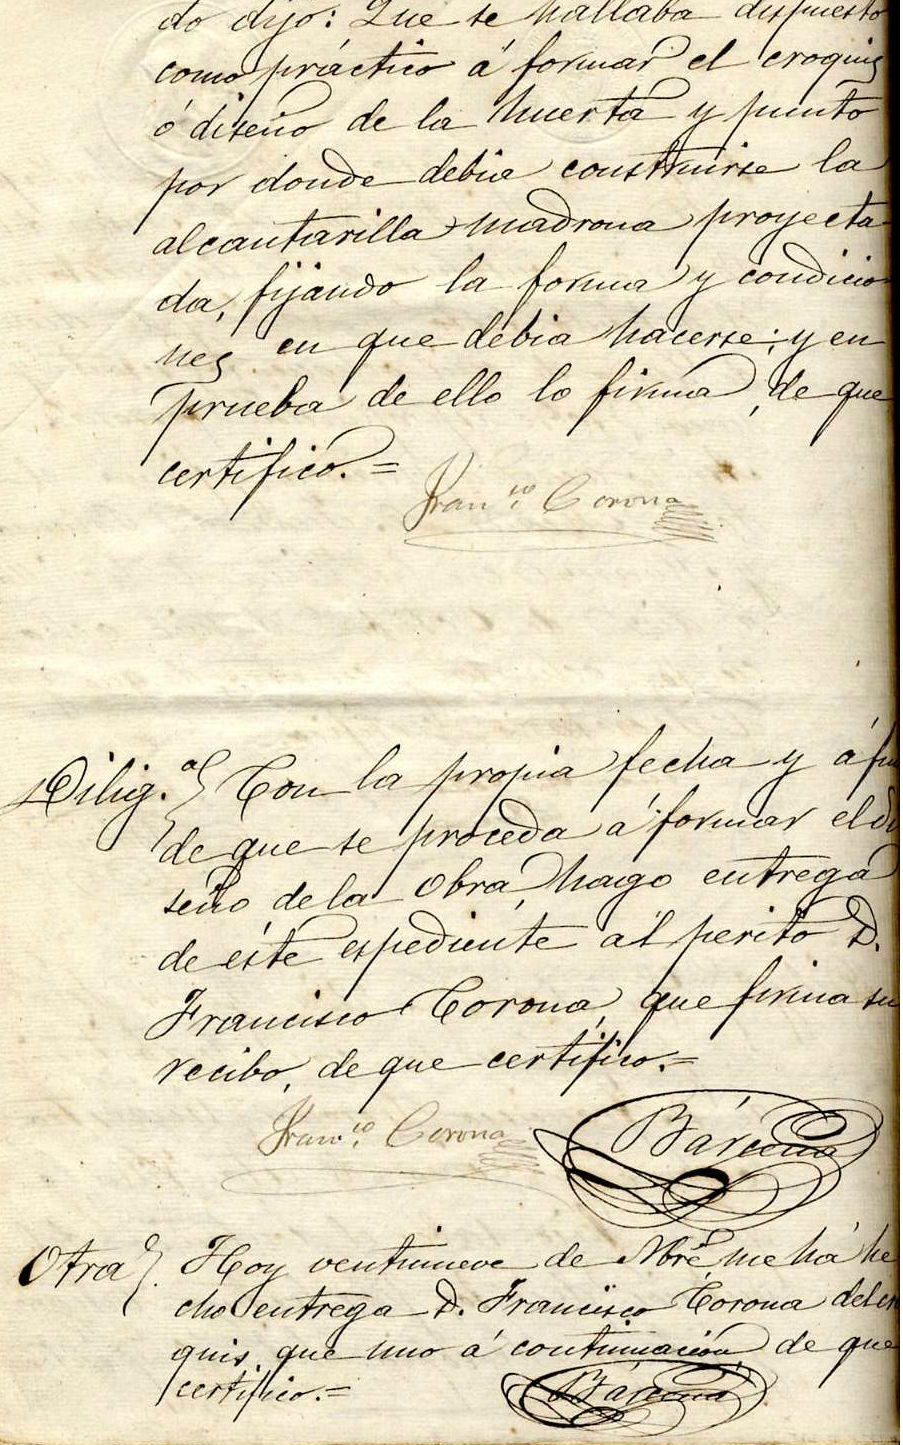 do dijo: Que se hallaba dispuesto
como práctico á formar el croquis
ó diseño de la huerta y punto
por donde debia construirse la
alcantarilla madrona proyecta-
da, fijando la forma y condicio-
nes en que debia hacerse; y en
prueba de ello lo firma, de que
certifico.=
Fran.co Corona
Dilig.a Con la propia fecha y á fin
de que se proceda á formar el di
seño de la obra, hago entrega
de éste espediente al perito D.
Francisco Corona, que firma su
recibo, de que certifico.=
Fran.co Corona
Bárcena
Otra. Hoy ventinueve de Nbre me há he
cho entrega D. Francisco Corona del cro
quis, que uno á continuación, de que
certifico.=
Bárcena